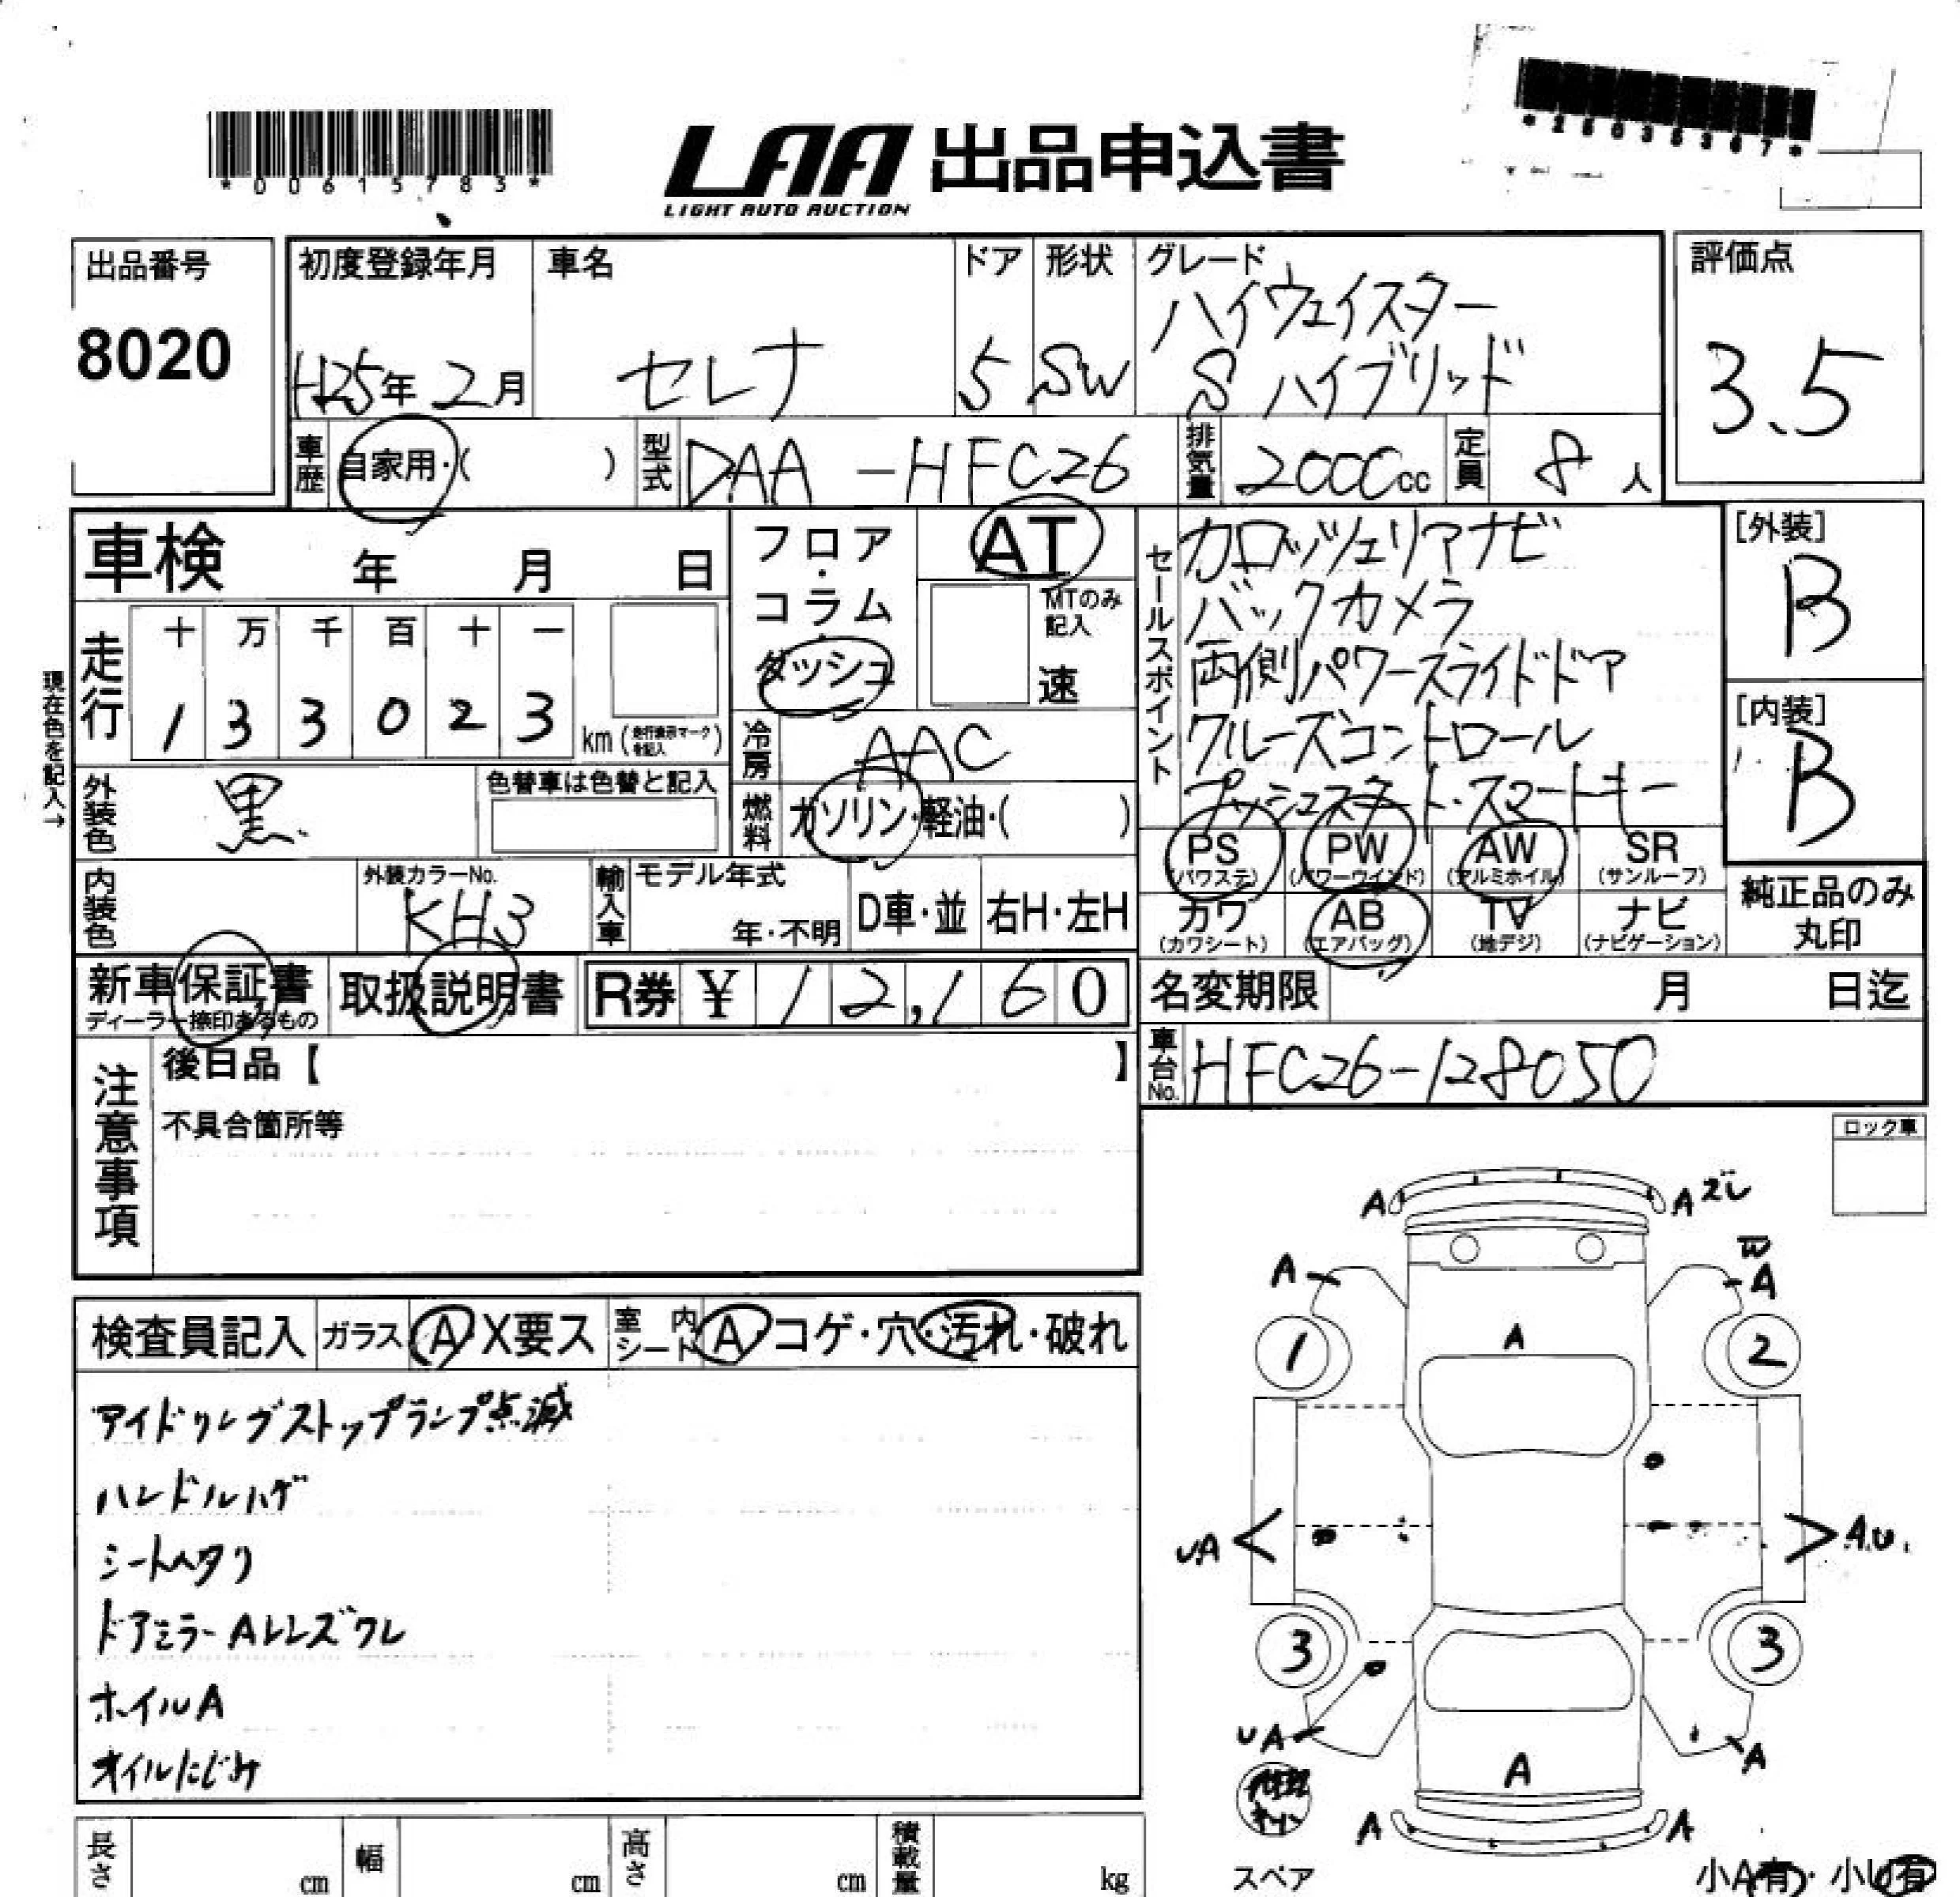 *00615783*
LAA 出品申込書
LIGHT AUTO AUCTION
*26035367*
出品番号
8020
初度登録年月
H25年 2月
車名
セレナ
ドア
5
形状
SW
グレード
ハイウェイスター
S ハイブリッド
評価点
3.5
車歴 自家用・( )
型式 DAA-HFC26
排気量 2000cc
定員 8人
車検 年 月 日
フロア・コラム・ダッシュ
AT
MTのみ記入
速
現在色を記入→
走行 十 万 千 百 十 一
1 3 3 0 2 3 km (走行表示マークを記入)
冷房 AAC
外装色 黒
色替車は色替と記入
燃料 ガソリン・軽油・( )
内装色
外装カラーNo.
KH3
輸入車
モデル年式
年・不明
D車・並
右H・左H
セールスポイント
カロッツェリアナビ
バックカメラ
両側パワースライドドア
クルーズコントロール
プッシュスタート・スマートキー
[外装]
B
[内装]
B
PS (パワステ)
PW (パワーウインド)
AW (アルミホイル)
SR (サンルーフ)
カワ (カワシート)
AB (エアバッグ)
TV (地デジ)
ナビ (ナビゲーション)
純正品のみ
丸印
新車保証書
ディーラー捺印あるもの
取扱説明書
R券 ¥ 12,160
名変期限 月 日迄
車台No. HFC26-128050
注意事項
後日品【 】
不具合箇所等
ロック車
検査員記入
ガラス A・X要ス
室内シート A・コゲ・穴・汚れ・破れ
アイドリングストップランプ点滅
ハンドルハゲ
シートヘタリ
ドアミラーAレンズワレ
ホイルA
オイルにじみ
A
A ズレ
A
W
A
1
A
2
UA
A.U.
3
3
UA
A
A
A
A
スペア
小A有・小U有
長さ cm
幅 cm
高さ cm
積載量 kg